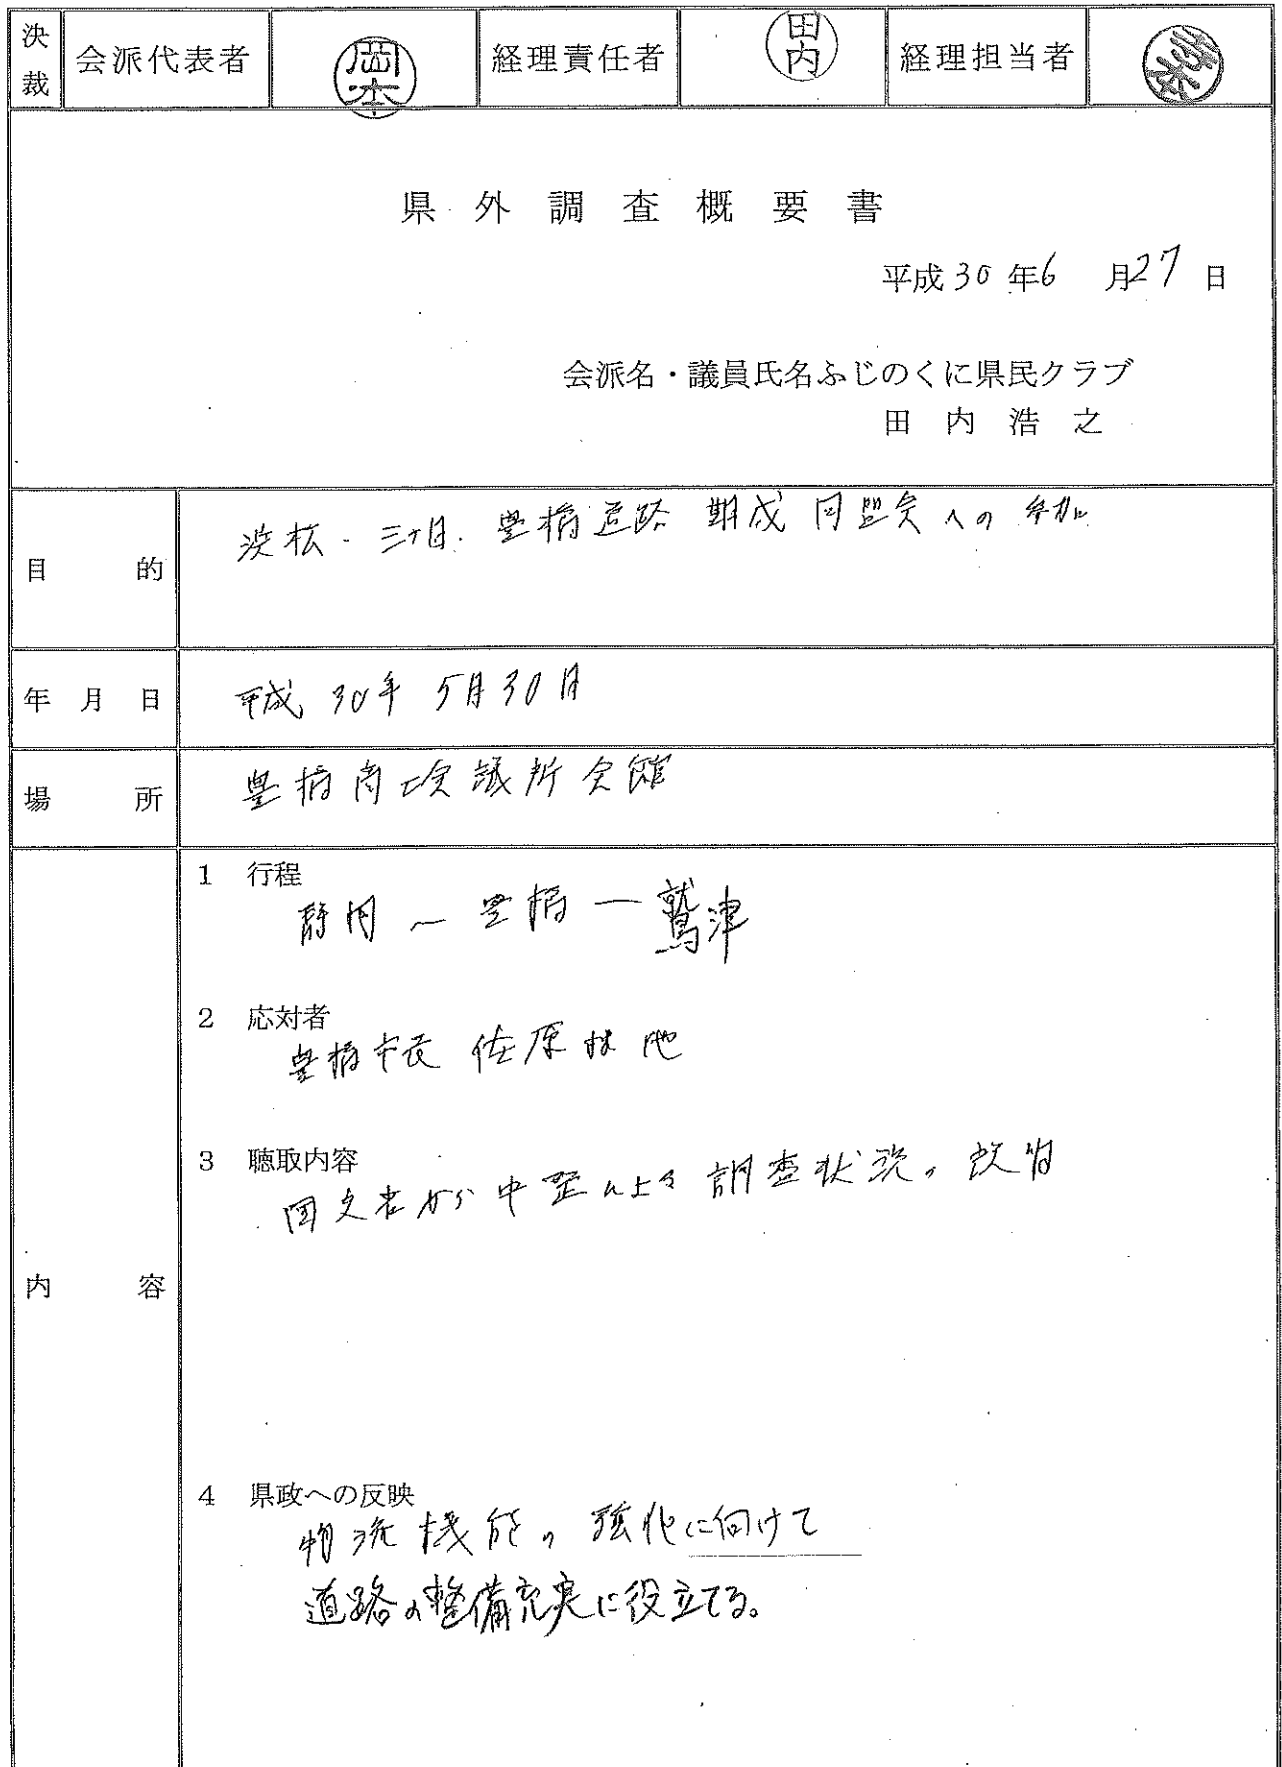 決裁 会派代表者 岡本 経理責任者 田内 経理担当者
県外調査概要書
平成30年6月27日
会派名・議員氏名ふじのくに県民クラブ
田内浩之
目的 浜松・三ヶ日・豊橋道路 期成同盟会への参加
年月日 平成30年5月30日
場所 豊橋商工会議所会館
内容
1 行程
静岡〜豊橋ー鷲津
2 応対者
豊橋市長 佐原
3 聴取内容
国交省から中整による調査状況の
4 県政への反映
物流機能の強化に向けて
道路の整備充実に役立てる。